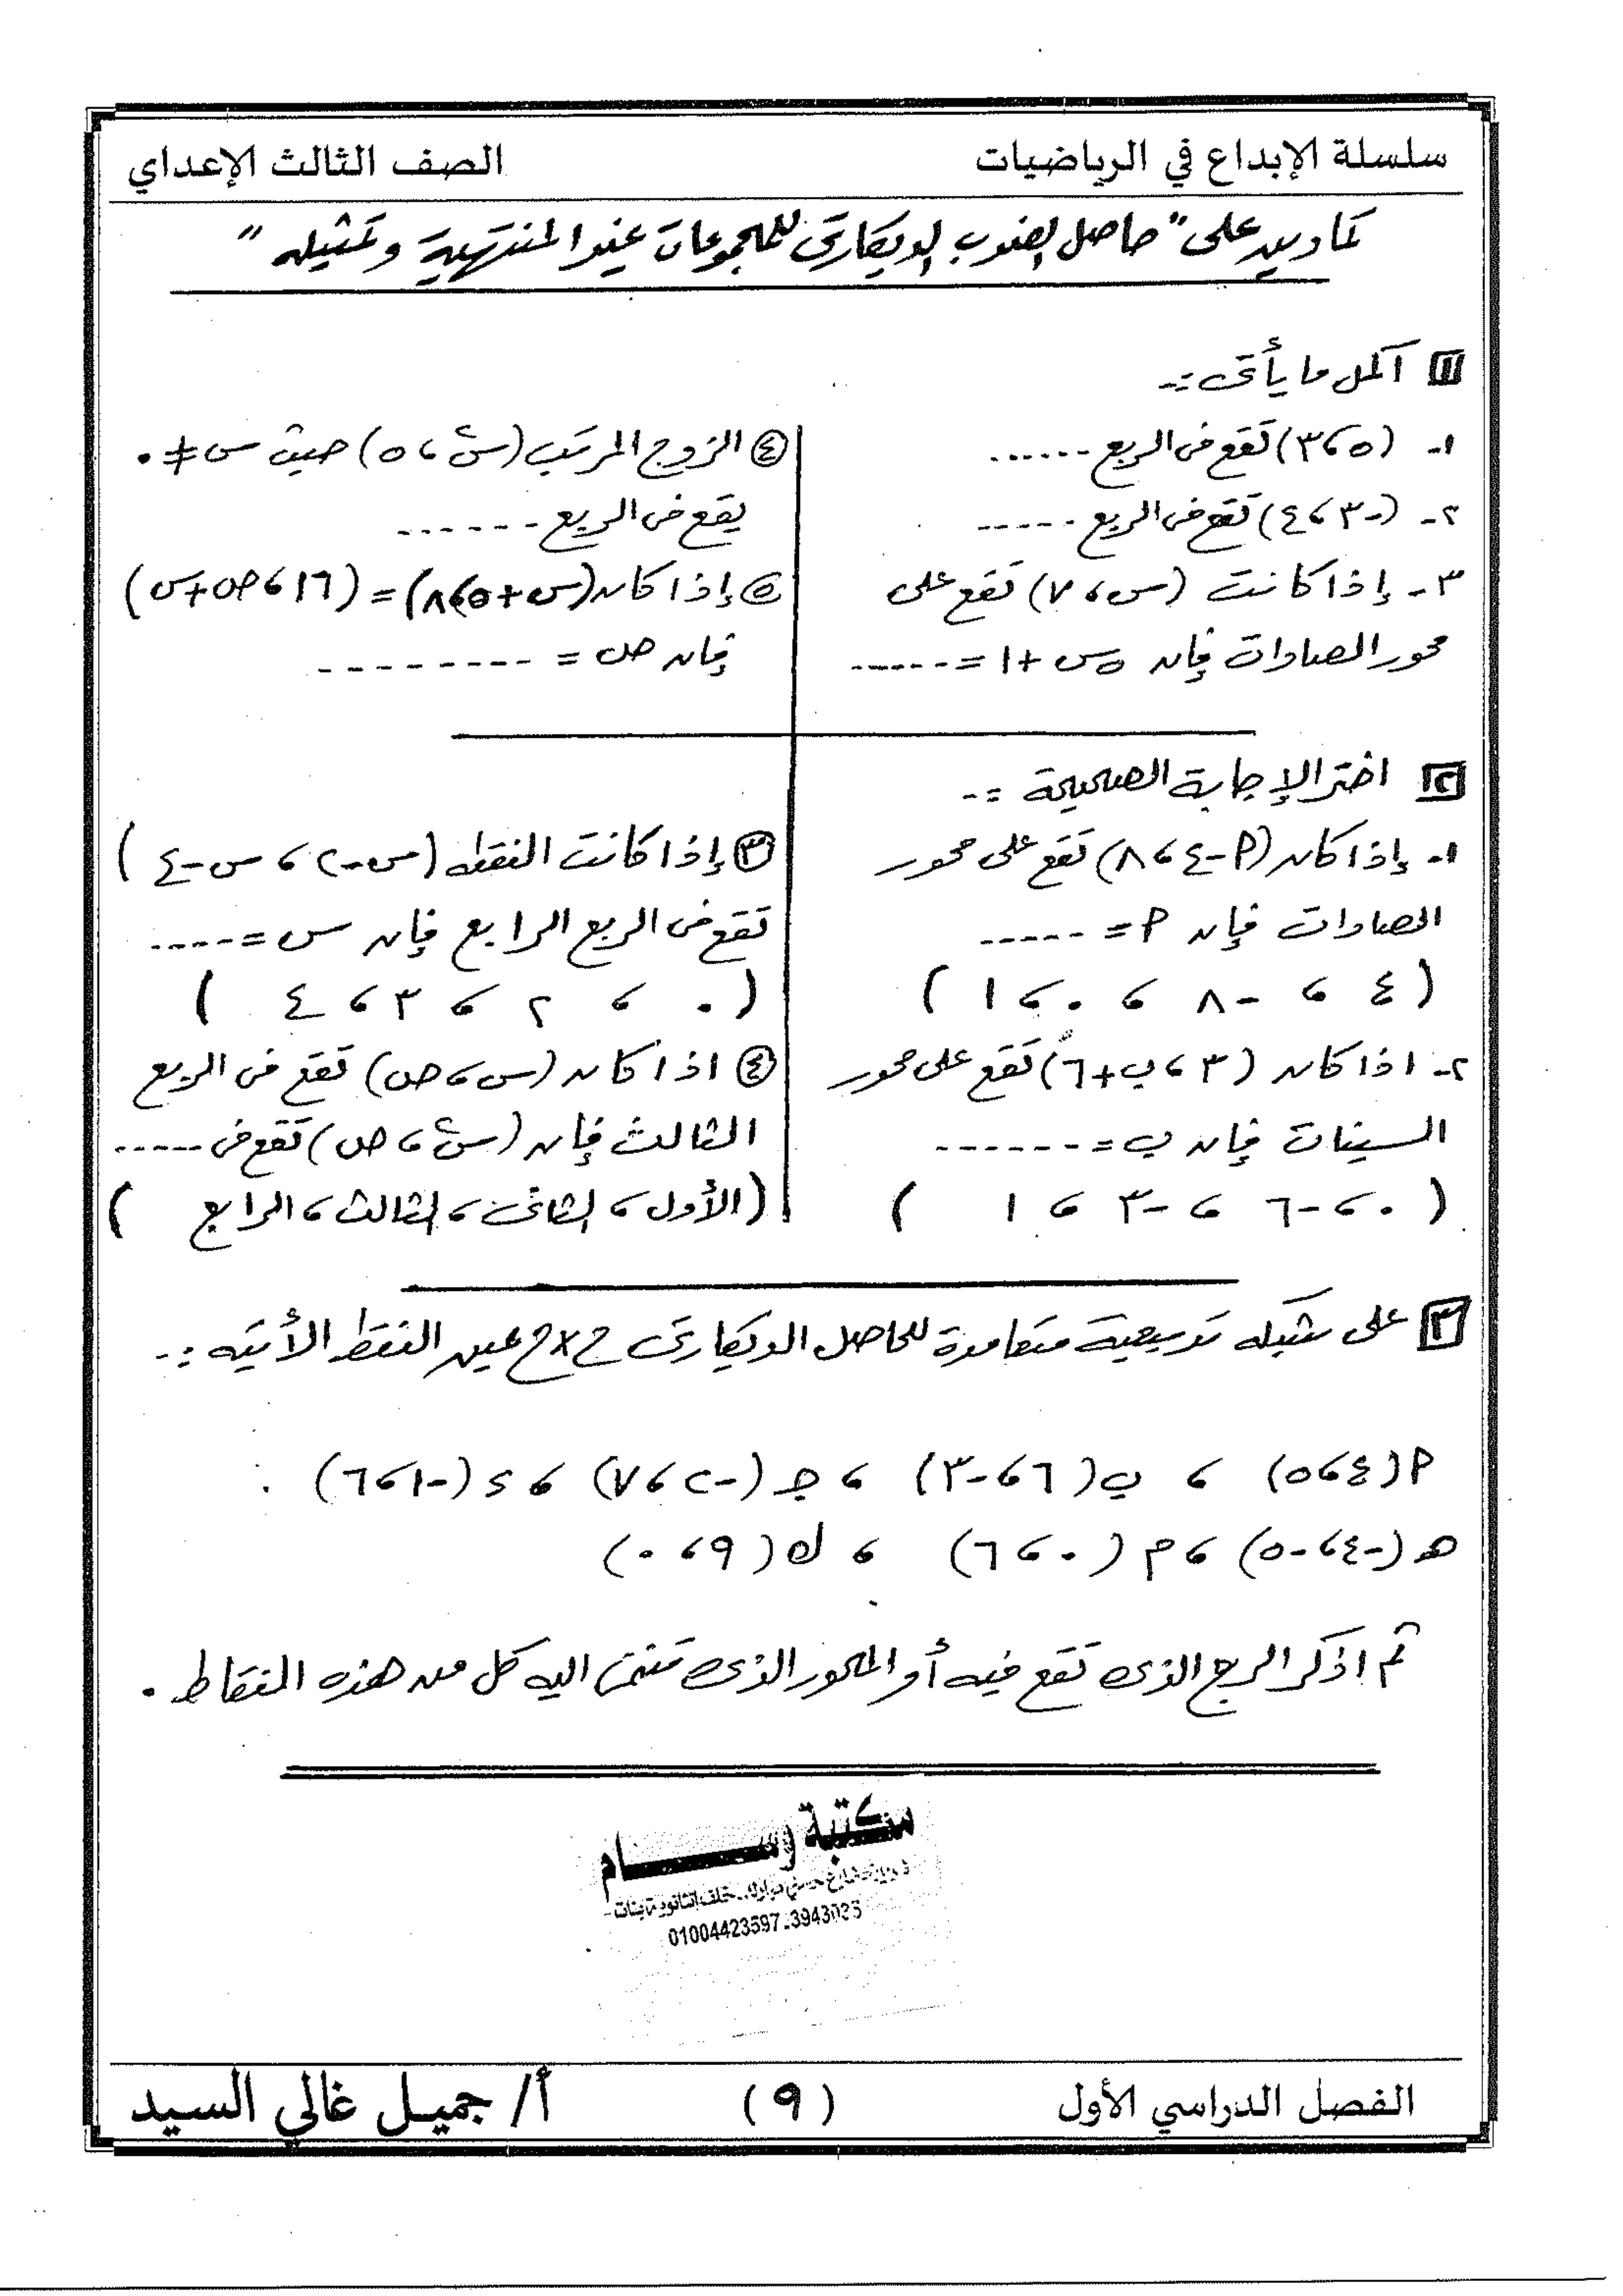 سلسلة الإبداع في الرياضيات
الصف الثالث الإعداي
تمارين على "حاصل الضرب الديكارتى للمجموعات غير المنتهية وتمثيله"
١ أكمل ما يأتى :-
١- (٥ ، ٣) تقع فى الربع ......
٢- (-٣ ، ٤) تقع فى الربع ......
٣- إذا كانت (س ، ٧) تقع على
محور الصادات فإن ٥س + ١ = ......
٤ الزوج المرتب (س² ، ٥) حيث س ≠ ٠
يقع فى الربع ------
٥ إذا كان (س + ٥ ، ٨) = (١٦ ، ص + س)
فإن ص = ---------
٢ اختر الإجابة الصحيحة :-
١- إذا كان (P - ٤ ، ٨) تقع على محور
الصادات فإن P = -----
( ٤ ، -٨ ، ٠ ، ١ )
٢- اذا كان (٣ ، ب + ٦) تقع على محور
السينات فإن ب = ------
( ٠ ، -٦ ، -٣ ، ١ )
٣ إذا كانت النقطه (س - ٢ ، س - ٤)
تقع فى الربع الرابع فإن س = ----
( ٠ ، ٢ ، ٣ ، ٤ )
٤ اذا كان (س ، ص) تقع فى الربع
الثالث فإن (س² ، ص) تقع فى -----
(الأول ، الثانى ، الثالث ، الرابع )
٣ على شبكه تربيعية متعامدة للحاصل الديكارتى ح × ح عين النقط الأتيه :-
P (٤ ، ٥) ، ب (٦ ، -٣) ، جـ (-٢ ، ٧) ، د (-١ ، ٦)
هـ (-٤ ، -٥) ، م (٠ ، ٦) ، ك (٩ ، ٠)
ثم اذكر الربع الذى تقع فيه أو المحور الذى تنتمى اليه كل من هذه النقاط .
مكتبة وسام
خلف الثانوية بنات
01004423597-3943035
الفصل الدراسي الأول
(٩)
أ/ جميل غالي السيد